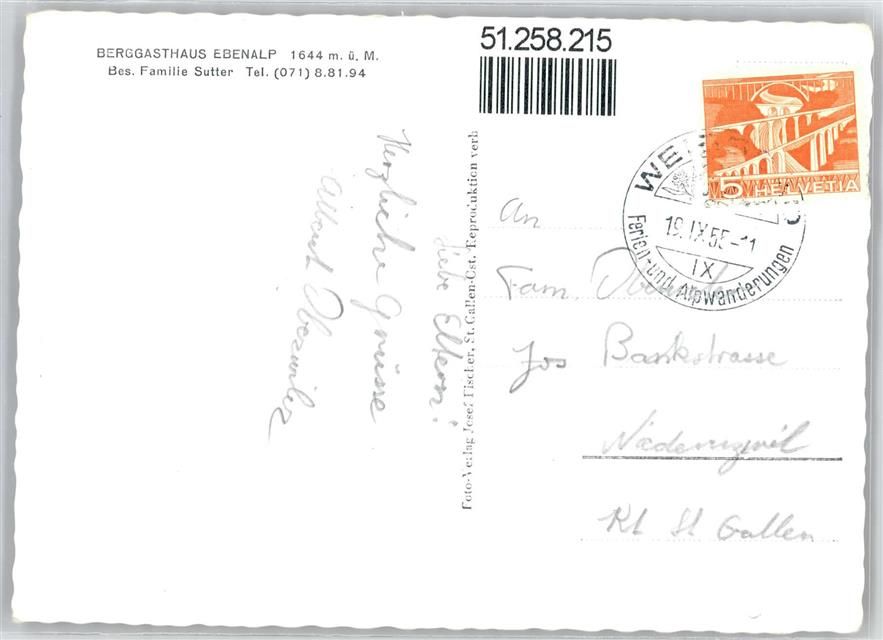 BERGGASTHAUS EBENALP 1644 m. ü. M.
Bes. Familie Sutter Tel. (071) 8.81.94
51.258.215
5 HELVETIA
19.IX.55-11
IX
Ferien- und Alpwanderungen
Foto-Verlag Josef Fischer, St. Gallen-Ost. Reproduktion verb
Liebe Eltern!
Herzliche Grüsse
Albert
An
Fam.
Jos
Bankstrasse
Niederuzwil
Kt St Gallen